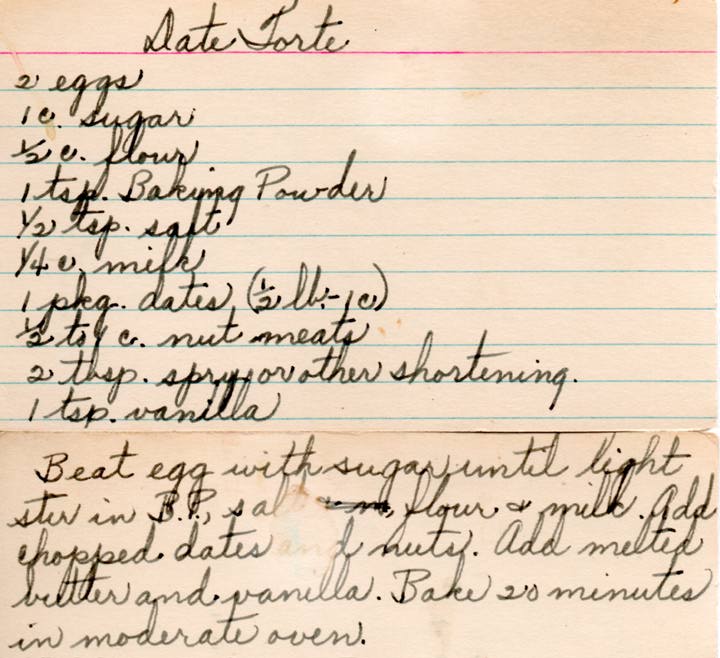 Date Torte
2 eggs
1 c. sugar
½ c. flour
1 tsp. Baking Powder
½ tsp. salt
¼ c. milk
1 pkg. dates (½ lb.-1 c)
½ to 1 c. nut meats
2 tbsp. spry or other shortening.
1 tsp. vanilla
Beat egg with sugar until light
stir in B.P., salt, flour & milk. Add
chopped dates and nuts. Add melted
butter and vanilla. Bake 20 minutes
in moderate oven.